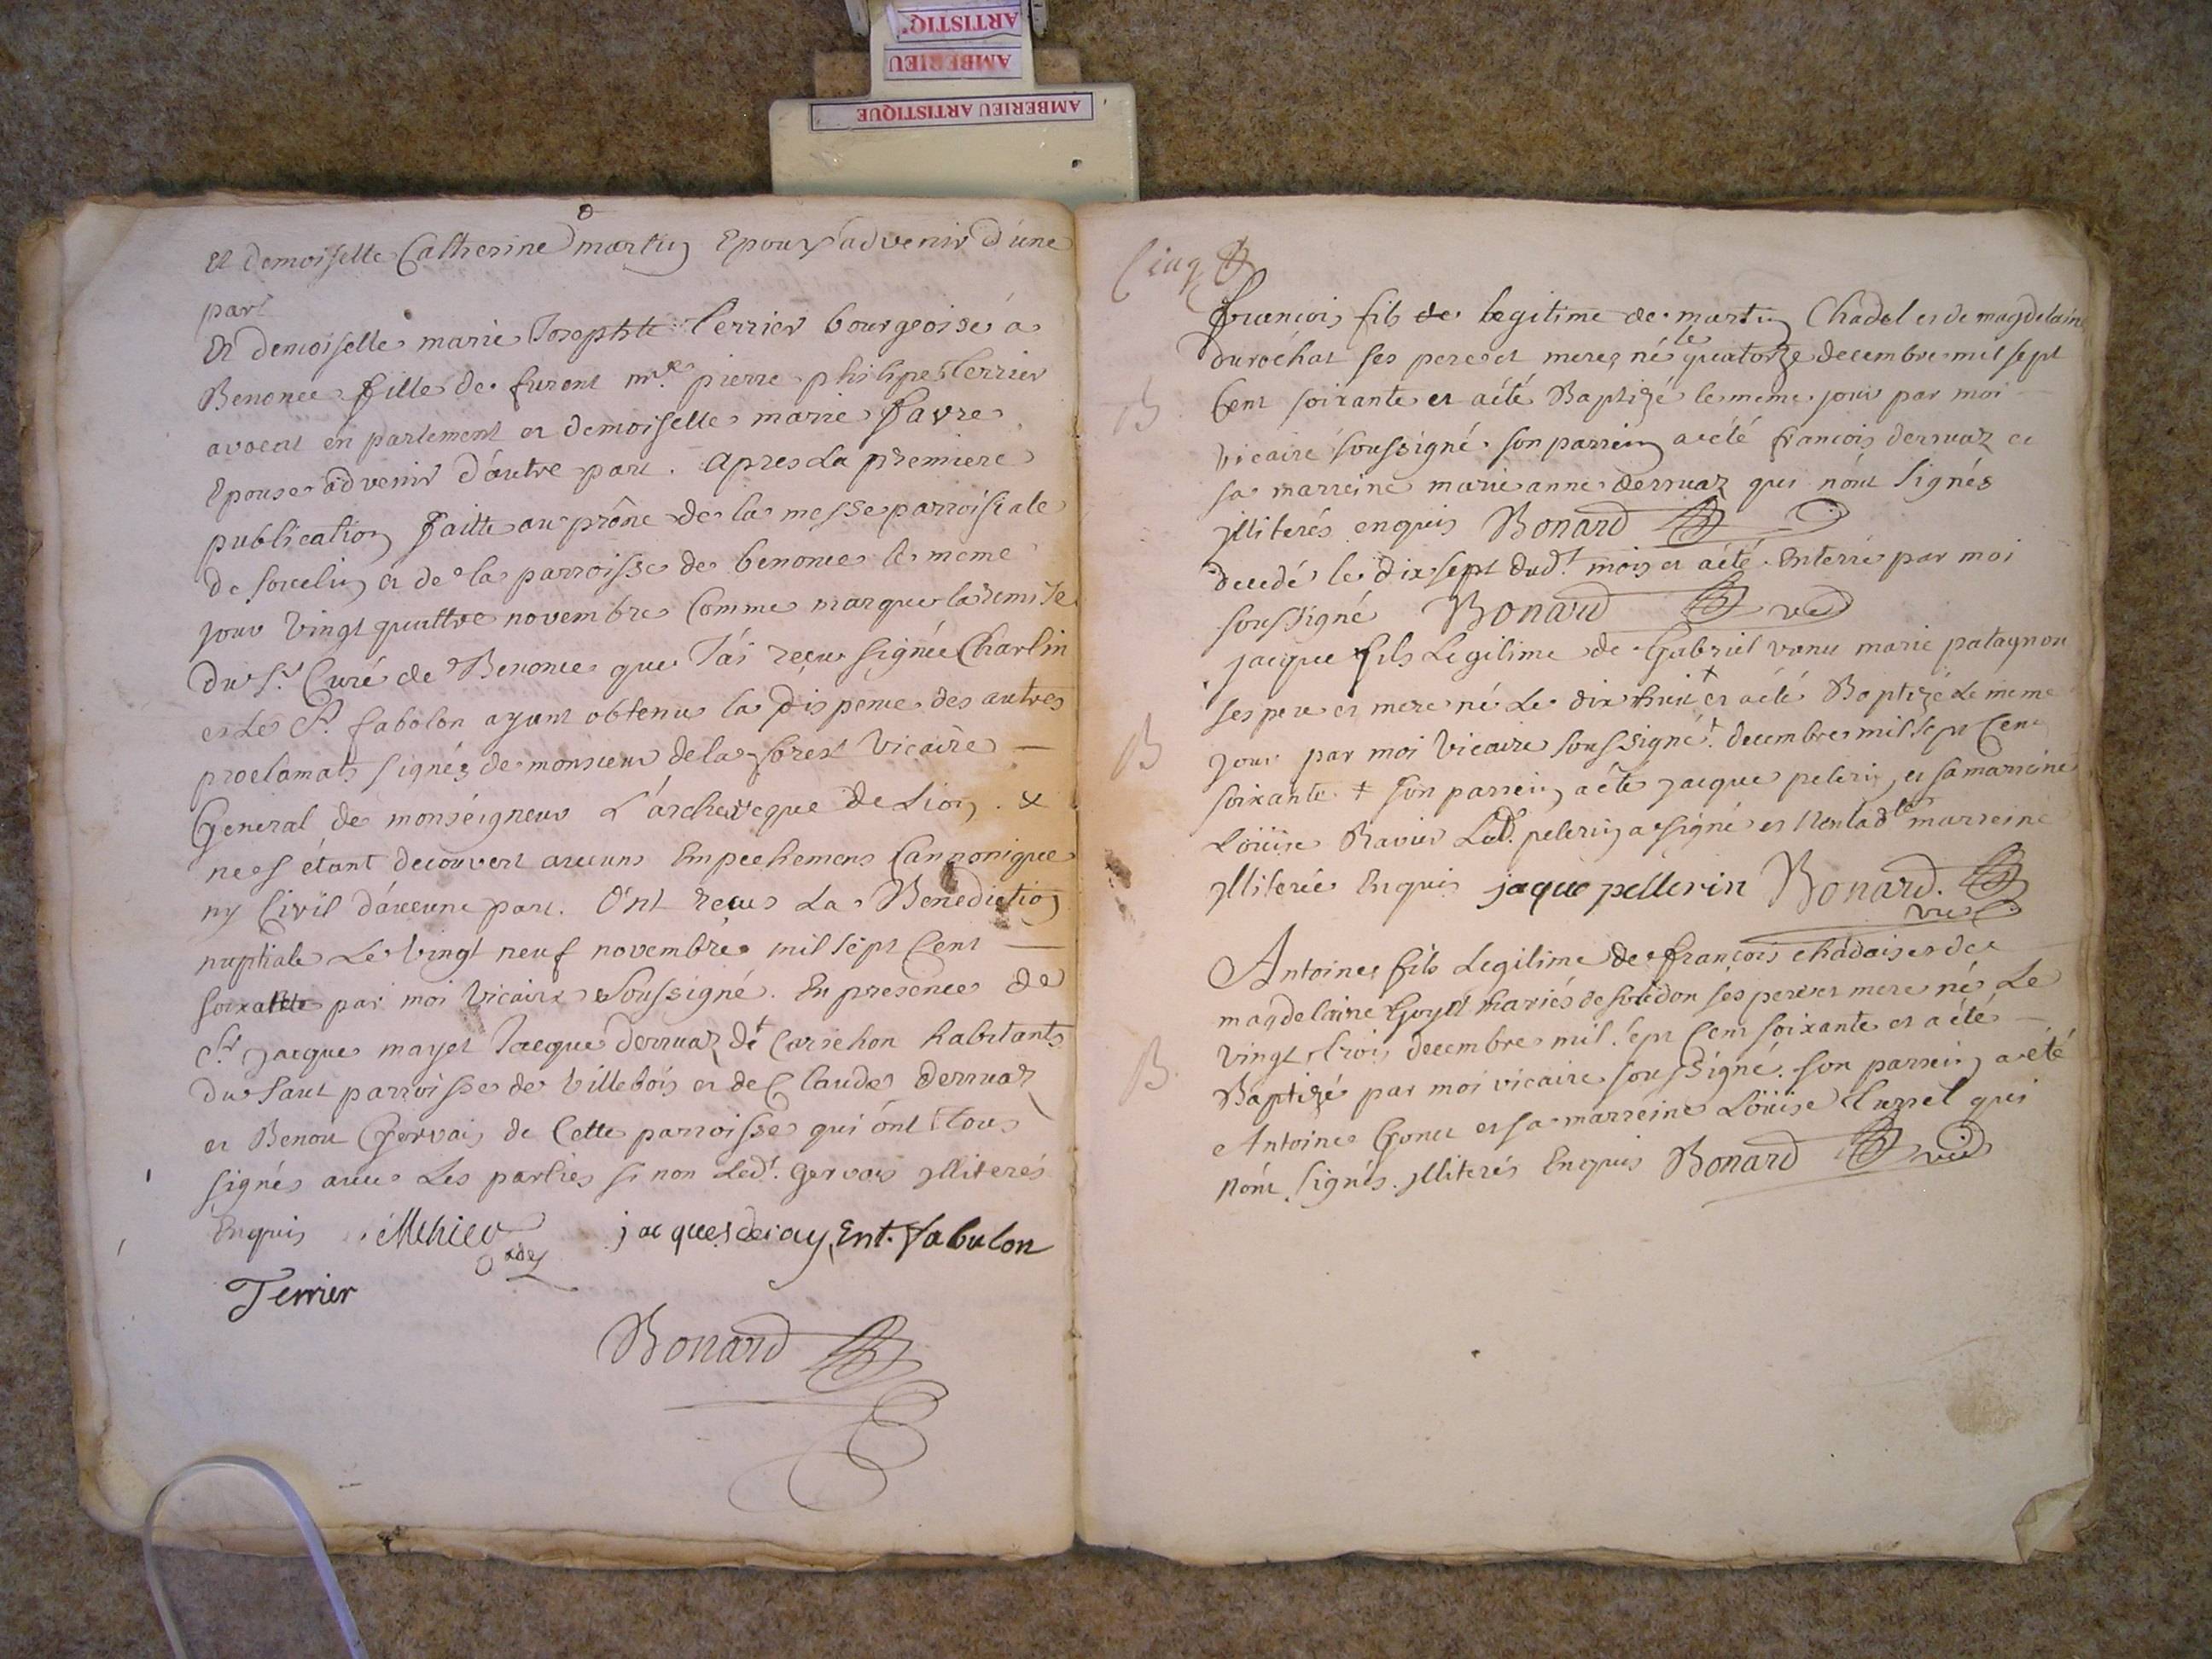 ARTISTIQ
AMBERIEU
AMBERIEU ARTISTIQUE
et demoiselle Catherine martin Epoux advenir d'une
part
Et demoiselle marie Josephte Terrier bourgeoise á
Benonce fille de furent mr. pierre philipe Terrier
avocat en parlement et demoiselle marie favre
Epouse advenir d'autre part. apres La premiere
publication faitte au prône de la messe parroissiale
de sorcelin et de la parroisse de benonce le meme
jour vingt quattre novembre Comme marque la remise
du Sr. Curé de Benonce que J'ái reçu signée Charlin
et Le Sr. fabolon ayant obtenu la dispence des autres
proclamats signéz de monsieur de la forest Vicaire
General de monséigneur L'árcheveque de Lion. &
ne s'étant decouvert aucuns Empechemens Cannonique
ny Civil d'áucune part. Ont reçus La Benediction
nuptiale Le vingt neuf novembre mil sept Cent
soixante par moi Vicaire Soussigné. En presence de
Sr jacque mayet Jacque derruaz dt Carichon habitants
du Saut parroisse de villebois et de Claude derruaz
et Benoit Gervais de Cette parroisse qui ónt tous
signés avec Les parties si non Ledt. Gervais jlliterés
Enquis jacques Ent. fabulon
Terrier
Bonard
Cinq
françois fils de legitime de martin Chadel et de magdelaine
durochat ses pere et mere, né le quatorze decembre mil sept
B Cent soixante et a été Baptizé le meme jour par moi
vicaire soussigné. son parrein a été françois derruaz et
sa marreine marie anne derruaz qui n'ónt signés
jlliterés enquis Bonard
decedé le dix sept dudt. mois et a été Enterré par moi
soussigné Bonard
jacque fils Legitime de Gabriel marie patagnon
ses pere et mere né Le dix huit † et a été Baptizé Le meme
B jour par moi Vicaire soussigné. † decembre mil sept Cent
soixante † son parrein a été jacque pelerin et sa marreine
Loüise Ravier Ledt. pelerin a signé et non ladte marreine
jlliterée Enquis jaque pellerin Bonard.
vu
Antoine fils Legitime de françois chadois et de
magdelaine Goyet mariés de ses pere et mere né Le
vingt trois decembre mil sept Cent soixante et a été
B Baptizé par moi vicaire soussigné. son parrein a été
Antoine Gonet et sa marreine Loüise qui
n'ónt signés. jlliterés Enquis Bonard